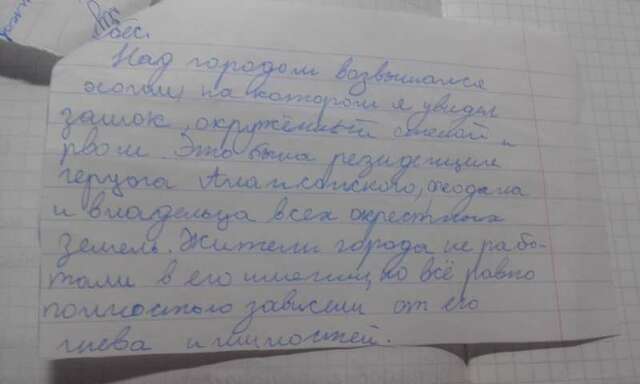 Над городом возвышался
холм, на котором я увидел
замок, окружённый стеной и
рвом. Это была резиденция
герцога Алансонского, господина
и владельца всех окрестных
земель. Жители города не рабо-
тали в его имении, но всё равно
полностью зависели от его
гнева и милостей.